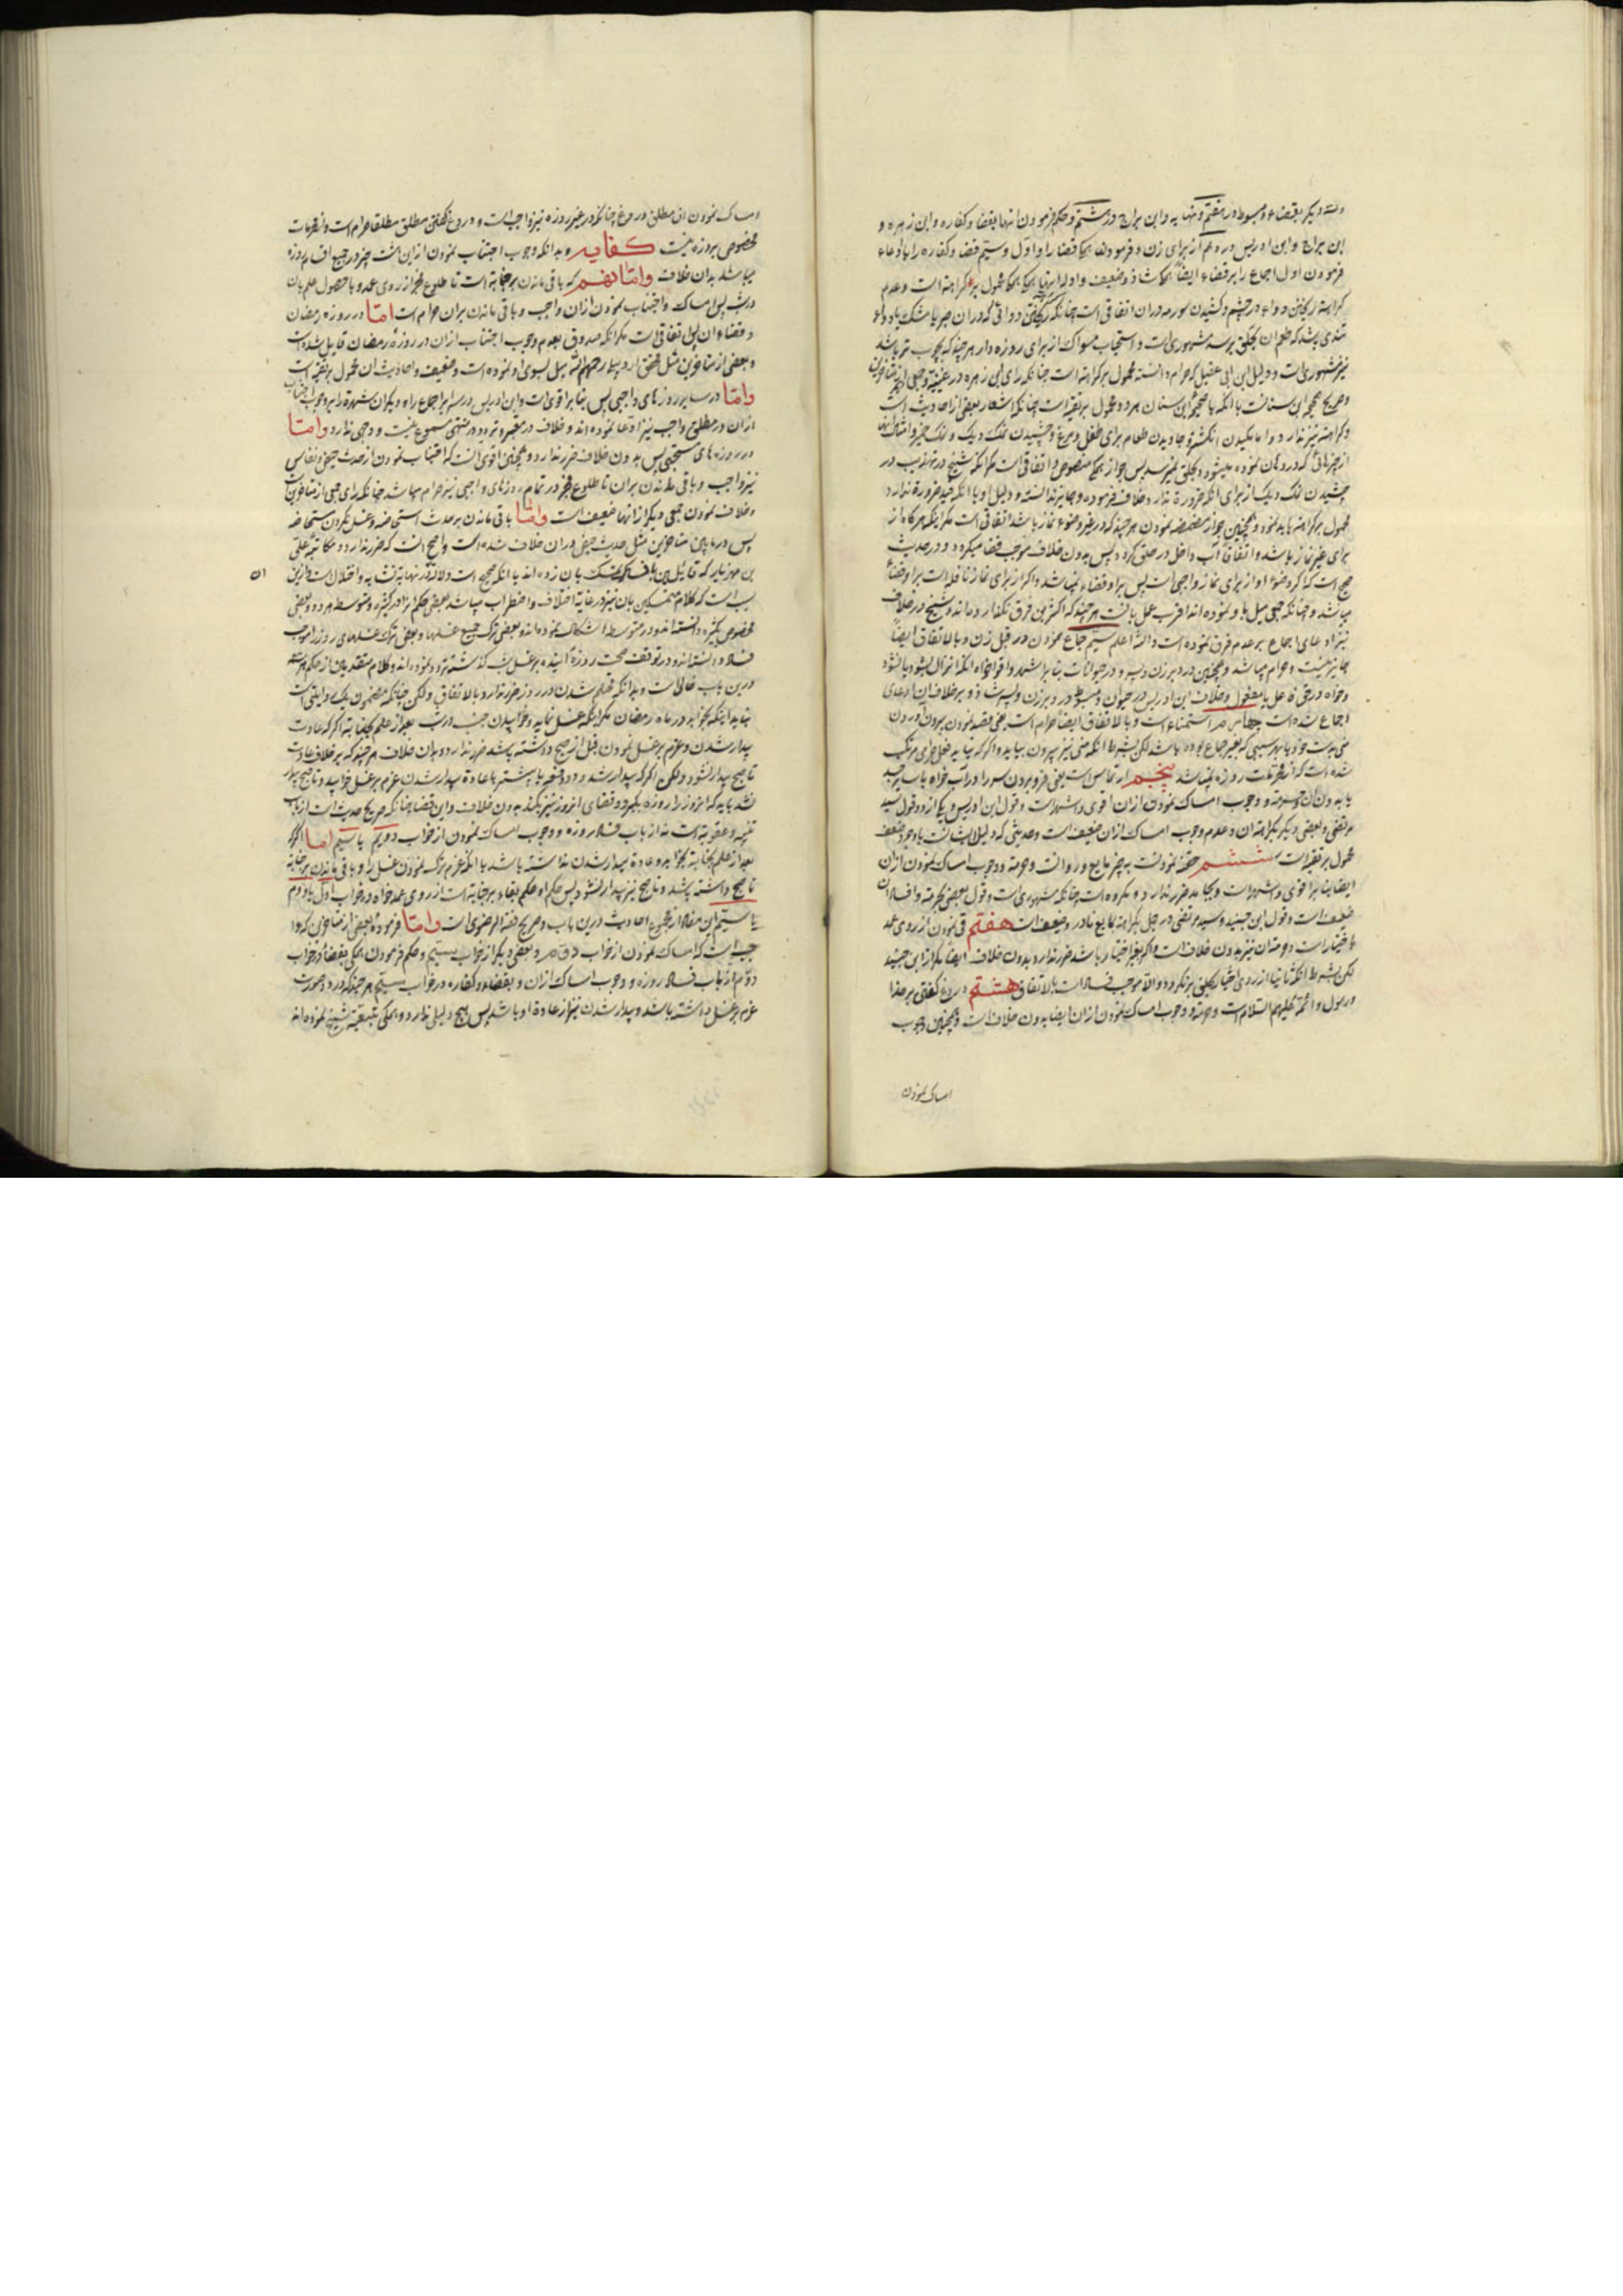 دانسته و دیگر بقضاء و مبسوط در هفتم و نهایه و ابن براج در هشتم و حکم فرمودن انها بقضا و کفاره و ابن زهره و
ابن براج و ابن ادریس در دهم از برای زن و فرمودن بقضا را و اول و سیّم قضا و کفاره را با ادعاء
فرمودن اول اجماع را بر قضاء ایضاً شاذ و ضعیف و ادله انها محمول بر کراهته است و عدم
کراهته ریختن دواء در چشم و کشیدن سورمه در ان اتفاقی است چنانکه دوائی که در ان صبر یا مشک یا دواء
تندی باشد که طعم ان بحلق برسد مشهوری است و استحباب مسواک از برای روزه دار هر چند که بچوب تر باشد
نیز مشهوری است و دلیل ابن ابی عقیل که حرام دانسته محمول بر کراهته است چنانکه رای ابن زهره در غنیه
و صریح صحیحه ابن سنانست با انکه محمول بر تقیه است چنانکه اشعار بعضی از احادیث است
و کراهته نیز ندارد و اما مکیدن انکشتر و جاویدن طعام برای طفل و مرغ و چشیدن نمک دیک و امثال انها
از چیزهائی که در دهان نموده میشود و بحلق نمیرسد پس جواز منصوص و اتفاقی است مگر انکه شیخ در تهذیب در
چشیدن نمک دیک از برای انکه ضرورة ندارد خلاف فرموده و جایز ندانسته و دلیل او با انکه قید ضرورة ندارد
محمول بر کراهته باید نمود و همچنین جواز مضمضه نمودن هر چند که در غیر وضوء نماز باشد اتفاقی است مگر اینکه هر کاه از
برای غیر نماز باشد و اتفاقا آب داخل در حلق کردد پس بدون خلاف موجب قضا میکردد و در حدیث
صحیح است که اگر وضوء او از برای نماز واجبی است پس بر او قضاء نمیباشد و اگر از برای نماز نافله است بر او قضاء
میباشد و چنانکه جمعی میل باو نموده اند اقرب عمل بانست هر چند که اکثر این فرق نکفته اند و شیخ در خلاف
نیز ادعای اجماع بر عدم فرق نموده است والله اعلم سیّم جماع نمودن در قبل زن و بالاتفاق ایضاً
جایز نیست و حرام میباشد و همچنین در دبر زن و پسر و در حیوانات بنابر اشهر و اقوا خواه انکه انزال بشود یا نشود
و خواه در حق فاعل یا مفعول و خلاف ابن ادریس در حیوان و مبسوط در دبر زن و پسر شاذ و بر خلاف ان ادعای
اجماع شده است چهارم استمناء است و بالاتفاق ایضاً حرام است یعنی قصد نمودن بیرون آوردن
منی بدست خود یا بهر سببی که بغیر جماع بوده باشد لکن بشرط انکه منی نیز بیرون بیاید و اگر که نیاید فعل حرامی مرتکب
شده است که از مفطرات روزه نمیباشد پنجم ارتماس است یعنی فرو بردن سر را در آب خواه با سایر جسد
یا بدون ان و حرمته و وجوب امساک نمودن از ان اقوی و اشهر است و قول ابن ادریس و یکی از دو قول سید
مرتضی و بعضی دیگر بکراهته ان و عدم وجوب امساک از ان ضعیف است و حدیثی که دلیل ایشانست با وجود ضعف
محمول بر تقیه است ششم حقنه نمودنست به چیز مایع و روانست و حرمته و وجوب امساک نمودن از ان
ایضا بنابر اقوی و اشهر است و بجامد ضرر ندارد و مکروه است چنانکه مشهوری است و قول بعضی بحرمته و افساد ان
ضعیف است و قول ابن جنید و سید مرتضی در جمل بکراهته بمایع نادر و ضعیف است هفتم قی نمودن از روی عمد
و اختیار است و حرمته ان نیز بدون خلاف است و اگر بغیر اختیار باشد ضرر ندارد بدون خلاف ایضاً مگر از ابن جنید
لکن بشرط انکه ثانیا از روی اختیار بحلق بر نکردد و الا موجب فساد است بالاتفاق هشتم دروغ گفتن بر خدا
و رسول و ائمه علیهم السلام است و حرمته و وجوب امساک نمودن از ان ایضا بدون خلاف است و همچنین وجوب
امساک نمودن
امساک نمودن از مطلق دروغ چنانکه در غیر روزه نیز واجب است و دروغ گفتن مطلق مطلقا حرام است و از مفطرات
مخصوص بروزه نیست کفایه و بدانکه وجوب اجتناب نمودن از این هشت چیز در جمیع اقسام روزه
میباشد بدون خلاف و امّا نهم که باقی ماندن بر جنابة است تا طلوع فجر از روی عمد و با حصول علم بان
در شب پس امساک و اجتناب نمودن از ان واجب و باقی ماندن بران حرام است امّا در روزه رمضان
و قضاء ان پس اتفاقی است مگر انکه صدوق بعدم وجوب اجتناب از ان در روزهٔ رمضان قایل شده است
و بعضی از متاخرین مثل محقق اردبیلی رحمهم الله میل بسوی او نموده است و ضعیف و احادیث ان محمول بر تقیه است
وامّا در سایر روزهای واجبی پس بنابر اقوی است و ابن ادریس در سرایر اجماع را و دیگران شهرة را بر وجوب اجتناب
از ان در مطلق واجب نیز ادعا نموده اند و خلاف در معتبر و تردد در منتهی مسموع نیست و وجهی ندارد وامّا
در روزه های مستحبی پس بدون خلاف ضرر ندارد و همچنین اقوی انست که اجتناب نمودن از حدث حیض و نفاس
نیز واجب و باقی ماندن بران تا طلوع فجر در تمام روزهای واجبی نیز حرام میباشد چنانکه رای جمعی از متاخرین است
و خلاف نمودن جمعی دیگر از انها ضعیف است وامّا باقی ماندن بر حدث استحاضه و غسل نکردن مستحاضه
پس در مابین متاخرین مثل حدث حیض در ان خلاف شده است و اصح انست که ضرر ندارد و مکاتبهٔ علی
بن مهزیار که قائلین بافساد تمسک بان زده اند با انکه صحیح است دلالتش در نهایة تشابه و اختلال است و ازین
ان
سبب است که کلام متمسکین بان نیز در غایة اختلاف و اضطراب میباشد بعضی حکم را در کثیره و متوسطه هر دو و بعضی
مخصوص بکثیره دانسته اند و در متوسطه اشکال نموده اند و بعضی ترک جمیع غسلها و بعضی ترک غسلهای روز را موجب
فساد دانسته اند و در توقف صحت روزهٔ آینده بر غسل شب گذشته تردد نموده اند و کلام متقدمین از حکم
درین باب خالی است و بدانکه محتلم شدن در روز ضرر ندارد بالاتفاق ولکن چنانکه مضمون یک روایتی است
نباید اینکه بخوابد در ماه رمضان مگر اینکه غسل نماید و خوابیدن جنب در شب بعد از علم بجنابته اگر که عادت
بیدار شدن و عزم بر غسل نمودن قبل از صبح داشته باشد ضرر ندارد بدون خلاف هر چند که بر خلاف عادت
تا صبح بیدار نشود ولکن اگر که بیدار شد و دو دفعه یا بیشتر با عادة بیدار شدن و عزم بر غسل خوابید و تا صبح بیدار
نشد باید که انروز را روزه بگیرد و قضای انروز نیز بکند بدون خلاف و این قضا چنانکه صریح حدیث است از باب
تنبیه و عقوبة است نه از باب فساد روزه و وجوب امساک نمودن از خواب دویم یا سیّم امّا اگر که
بعد از علم بجنابة بخوابد و عادة بیدار شدن نداشته باشد یا انکه عزم بترک نمودن غسل را و باقی ماندن بر جنابة
تا صبح داشته باشد و تا صبح نیز بیدار نشود پس حکم او حکم بقاء بر جنابة است از روی عمد خواه در خواب اول یا دوم
یا سیّم این مفاد از مجموع احادیث درین باب و صریح فقه الرضوی است وامّا فرمودهٔ بعضی از متاخرین که وا
جب است که امساک نمودن از خواب دوّم و بعضی دیگر از خواب سیّم و حکم فرمودن بقضاء در خواب
دوّم از باب فساد روزه و وجوب امساک از ان و بقضا و کفاره در خواب سیّم هر چند که در دو صورت
عزم بر غسل داشته باشد و بیدار شدن نیز از عادة او باشد پس هیچ دلیلی ندارد و بتبعیة شیخ نموده اند